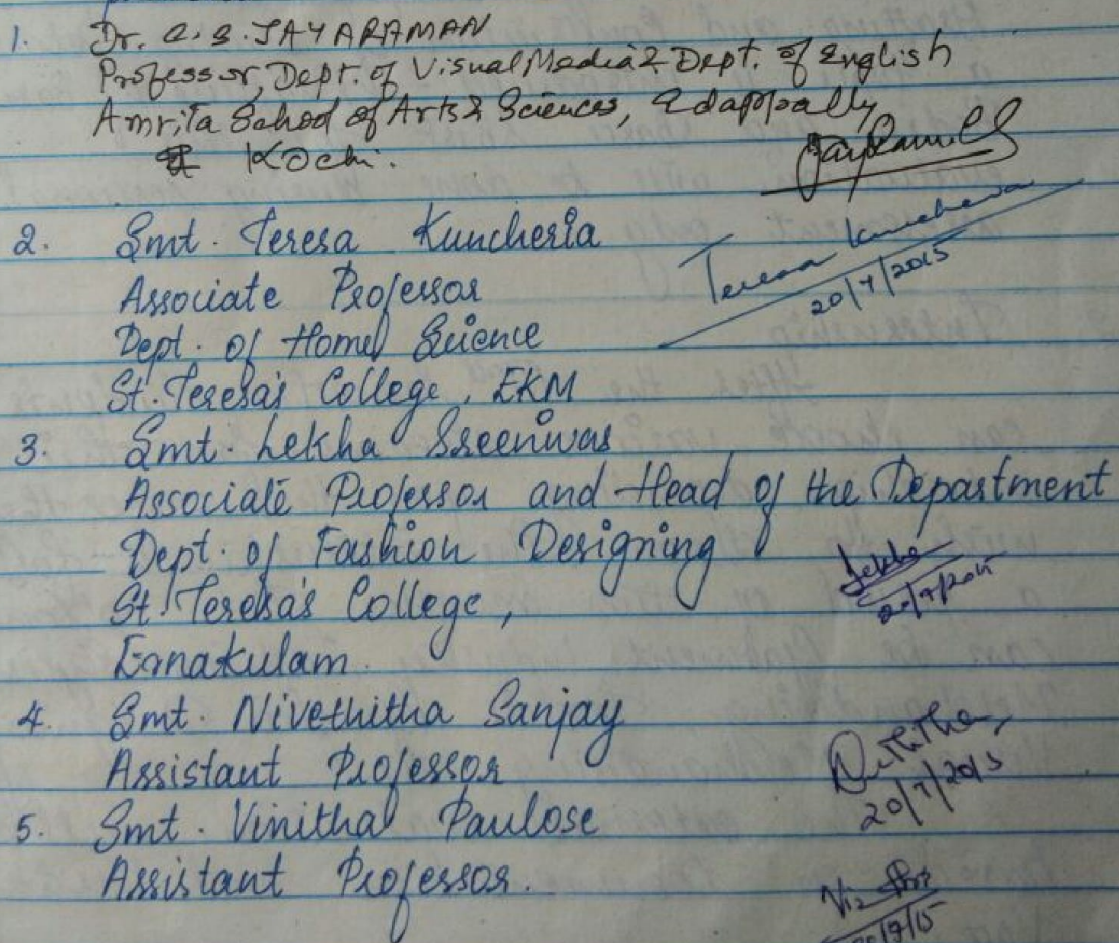 1. Dr. C. S. JAYARAMAN
Professor, Dept. of Visual Media & Dept. of English
Amrita School of Arts & Sciences, Edappally
Kochi.
2. Smt. Teresa Kuncheria
Teresa Kuncheria
20/7/2015
Associate Professor
Dept. of Home Science
St. Teresa's College, EKM
3. Smt. Lekha Sreenivas
Associate Professor and Head of the Department
Dept. of Fashion Designing
Lekha
20/7/2015
St. Teresa's College,
Ernakulam.
4. Smt. Nivethitha Sanjay
Assistant Professor
20/7/2015
5. Smt. Vinitha Paulose
Assistant Professor.